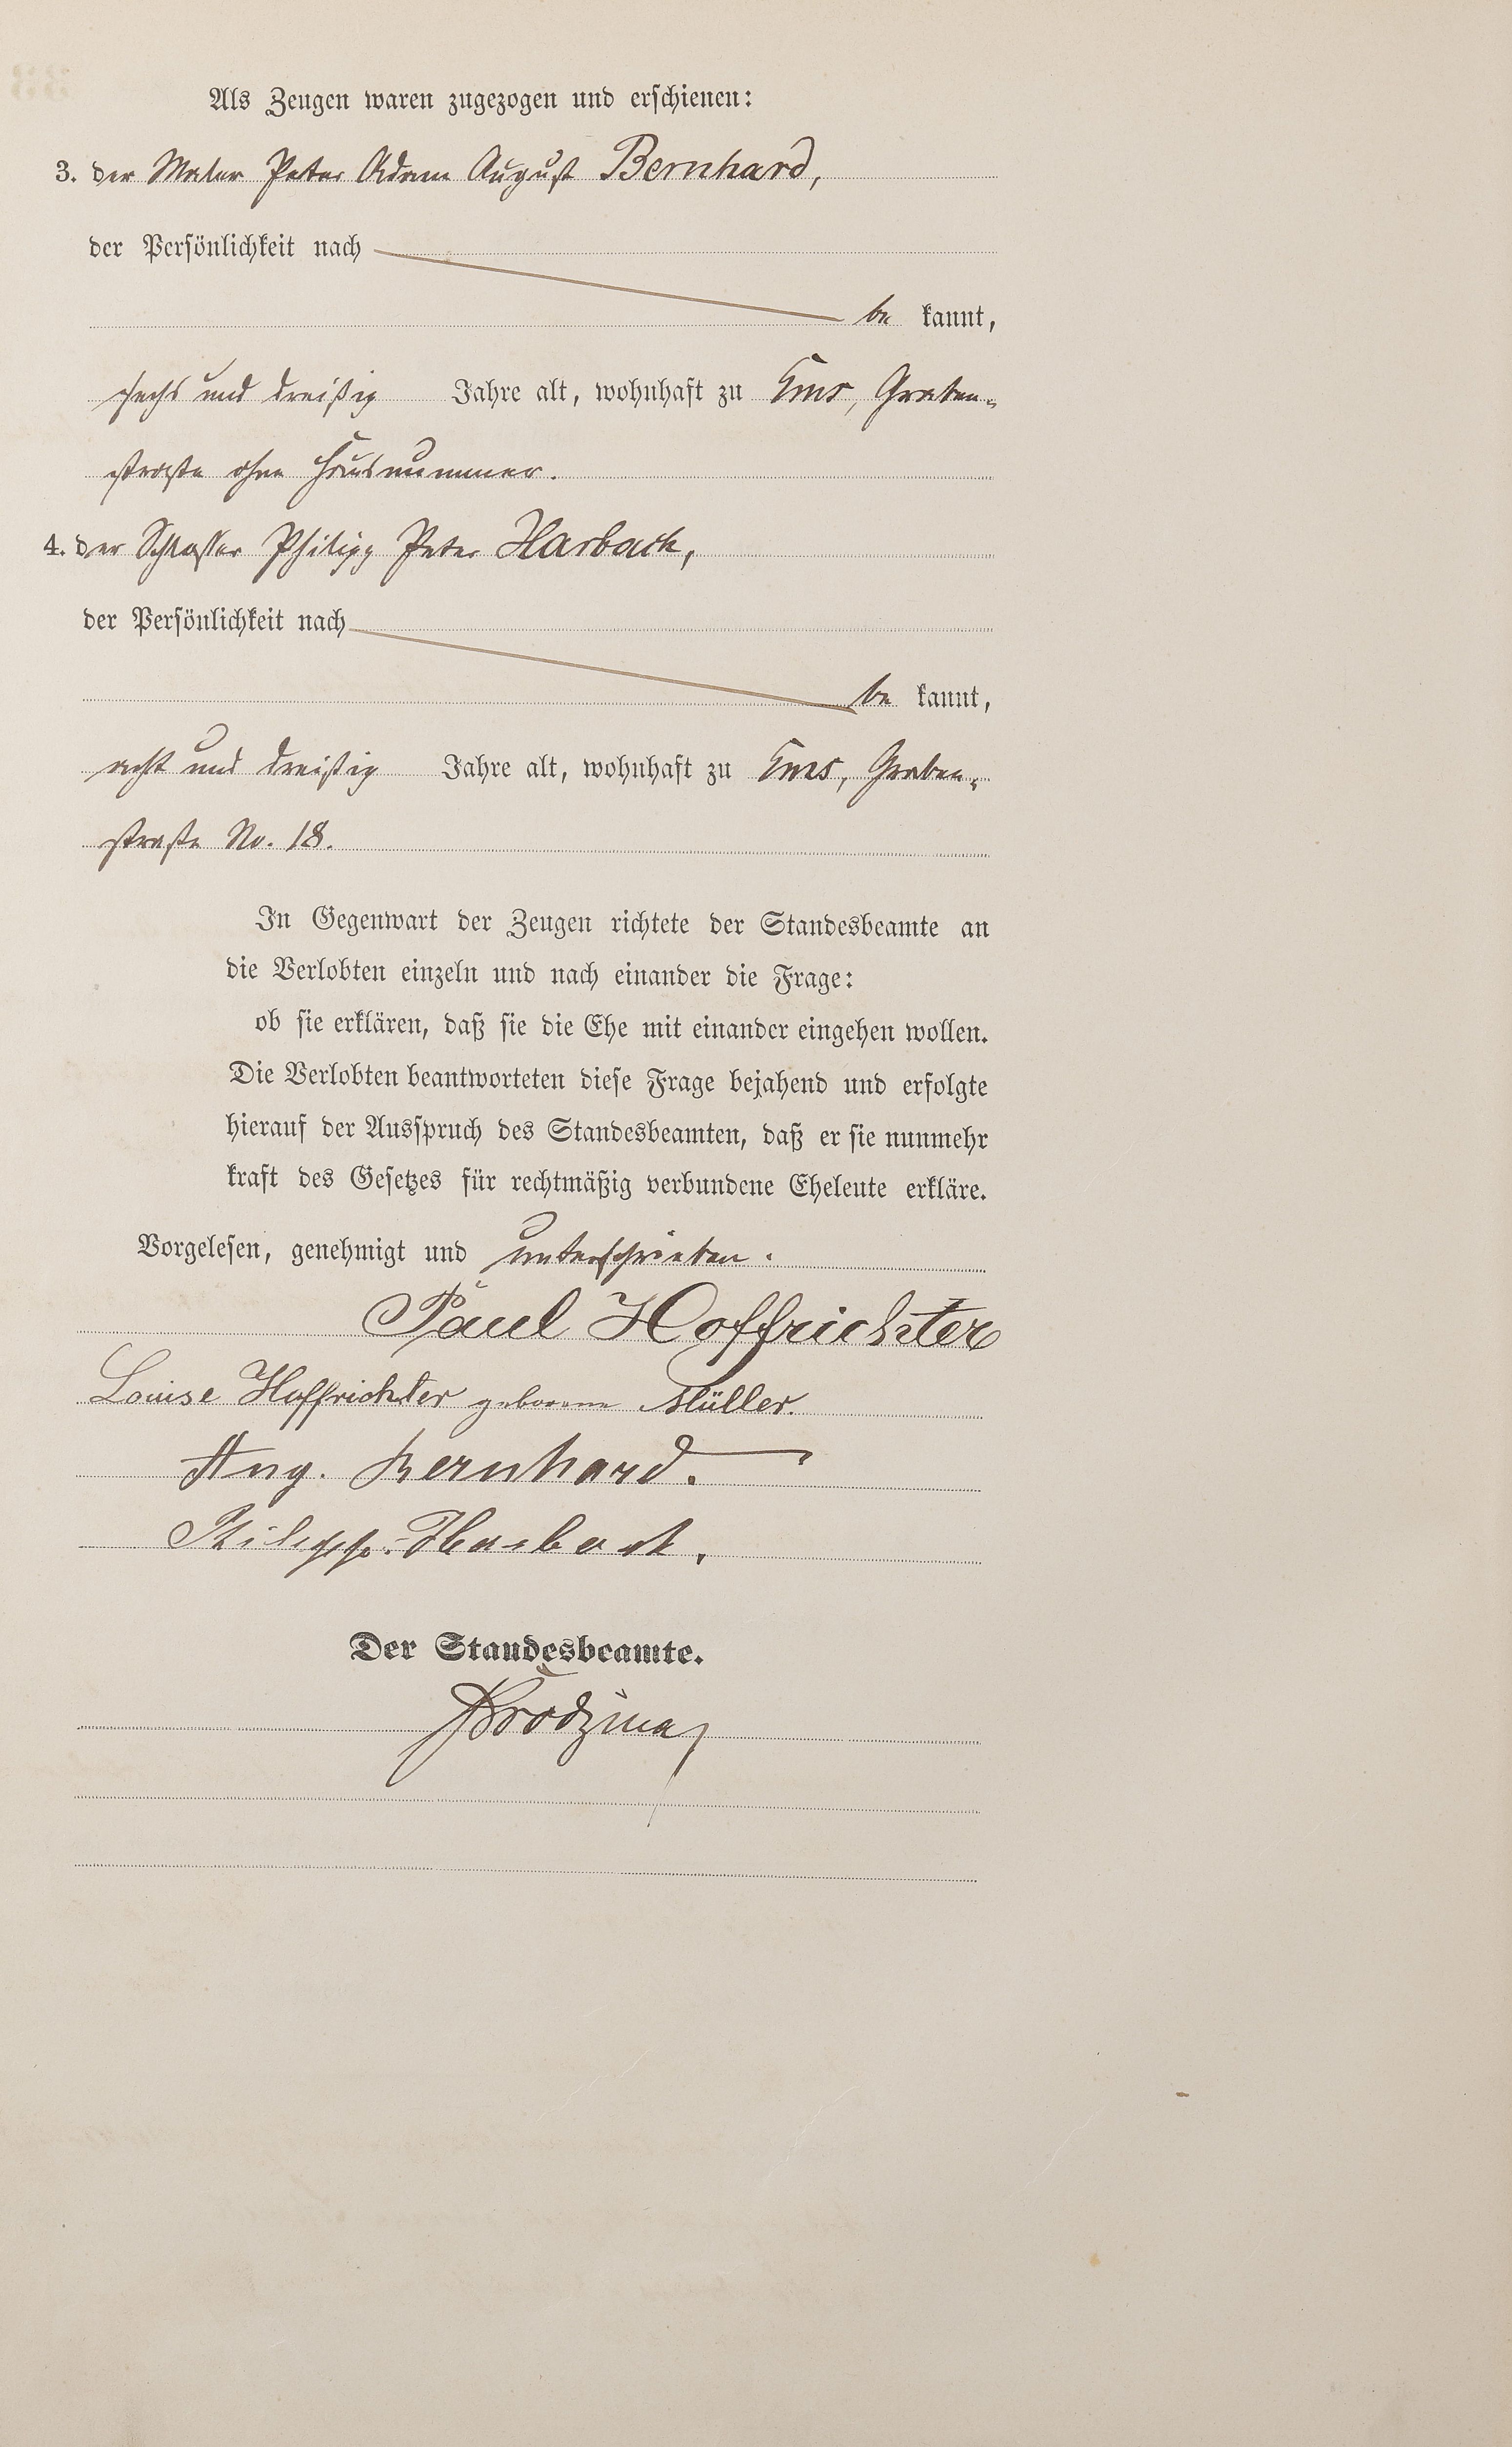 Als Zeugen waren zugezogen und erschienen:
3. der Maler Peter Adam August Bernhard,
der Persönlichkeit nach
be kannt,
sechs und dreißig Jahre alt, wohnhaft zu Ems, Graben-
straße ohne Hausnummer.
4. der Schlosser Philipp Peter Harbach,
der Persönlichkeit nach
be kannt,
acht und dreißig Jahre alt, wohnhaft zu Ems, Graben-
straße No. 18.
In Gegenwart der Zeugen richtete der Standesbeamte an
die Verlobten einzeln und nach einander die Frage:
ob sie erklären, daß sie die Ehe mit einander eingehen wollen.
Die Verlobten beantworteten diese Frage bejahend und erfolgte
hierauf der Ausspruch des Standesbeamten, daß er sie nunmehr
kraft des Gesetzes für rechtmäßig verbundene Eheleute erkläre.
Vorgelesen, genehmigt und unterschrieben.
Paul Hoffrichter
Louise Hoffrichter geborene Müller.
Aug. Bernhard.
Philipp. Harbach.
Der Standesbeamte.